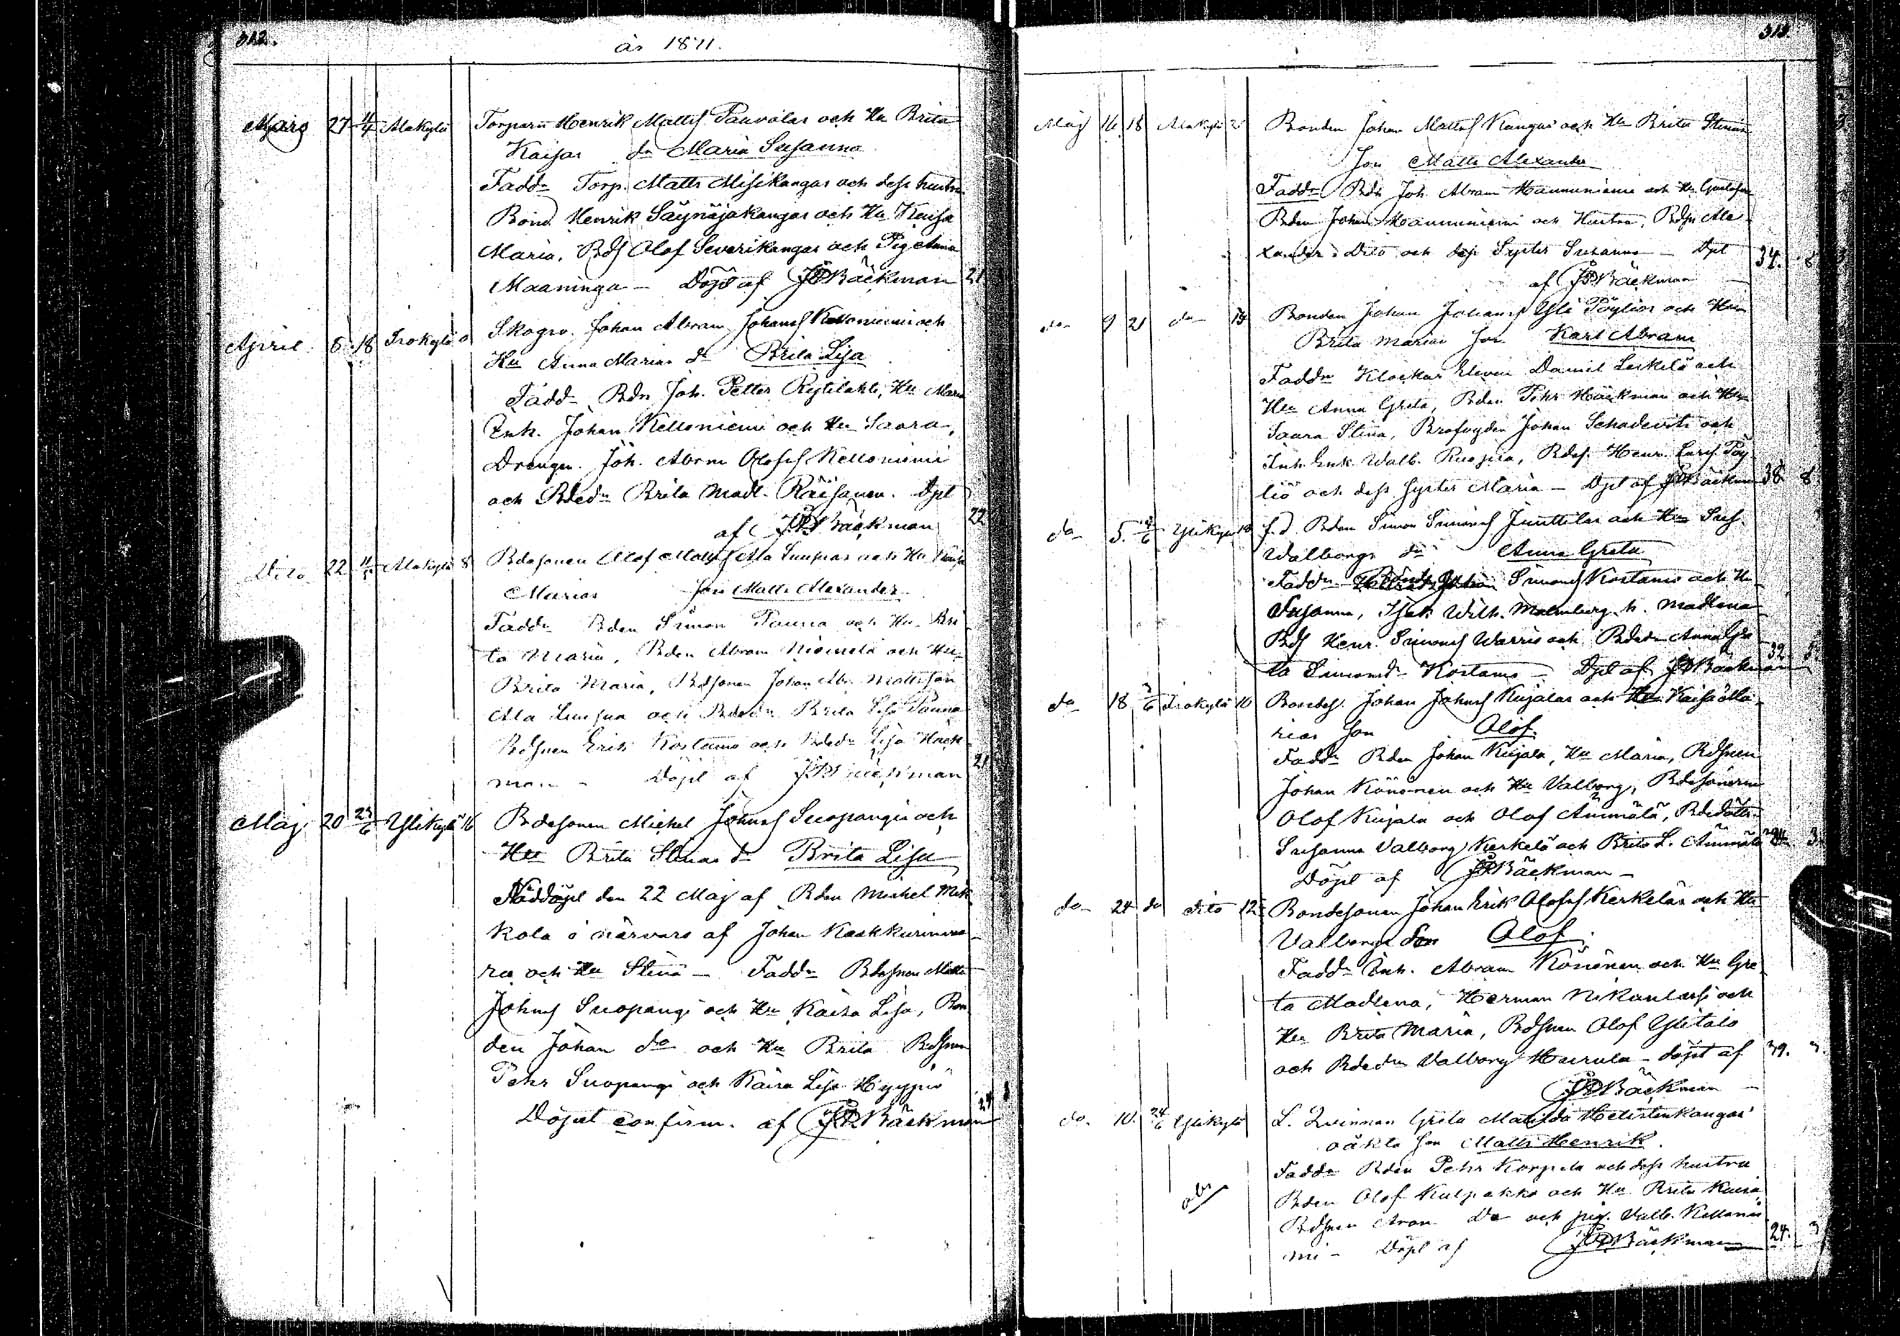 312.
år 1871.
Mars 27 4/4 Alakylä Torparn Henrik Matts Paavolas och Hu Brita
Kaisas dr Maria Susanna
Faddr Torp. Matts Misikangas och dess hustru
Bond. Henrik Säynäjäkangas och Hu Kaisa
Maria, Bds Olof Severikangas och Pig Anna
Maaninga — Döpt af JPBäckman 21
April 6 18 Isokylä 0 Skogsv. Johan Abram Johans Kelloniemi och
Hu Anna Marias dr Brita Lisa
Faddr Bdn Joh. Petter Rytilahti, Hu Maria
Enk. Johan Kelloniemi och Hu Saara,
Drängen Joh. Abrm Olofss Kelloniemi
och Bdedr Brita Madl. Räisänen. Dpt
af JPBäckman 22
Dito 22 Alakylä 8 Bdesonen Olof Matts Ala Suopas och Hu Kaisa
Marias son Matts Alexander
Faddr Bden Simon Pauna och Hu Bri
ta Maria, Bden Abram Niemelä och Hu
Brita Maria, Bdsonen Johan Abr. Mattsson
Ala Suopa och Bdedr Brita Lisa Pauna
Bdsnen Erik Kostamo och Bdedr Lisa Häck
man — Döpt af JPBäckman 21
Maj 20 23/6 Ylikylä 16 Bdesonen Michel Johns Suopangis och
Hu Brita Stinas dr Brita Lisa
Nöddöpt den 22 Maj af Bden Michel Mik
kola i närvaro af Johan
ra och Hu Stina — Faddr Bdesnen Matts
Johns Suopangi och Hu Kaisa Lisa, Bon
den Johan do och Hu Brita Bdsnen
Pehr Suopangi och Kaisa Lisa Hyypiö
Döpet confirm. af JPBäckman 24
313.
Maj 16 18 Alakylä Bonden Johan Matts Kangas och Hu Brita Stinas
son Matts Alexander
Faddr Bdn Joh. Abram Hannuniemi och Hu Gustafva
Bden Johan Hannuniemi och Hustru, Bdsn Ale
xander Dito och dess Syster Susanna — Dpt 34.
af JPBäckman
do 9 21 do 19 Bonden Johan Johans Yli Pöyliös och Hu
Brita Marias son Karl Abram
Faddr Klockar Eleven Daniel Leskelä och
Hu Anna Greta, Bden Pehr Häckman och Hu
Saara Stina, Brofogden Johan Schadevits och
Inh. Enk. Walb. Ruopsa, Bdes. Henr. Pöy
liö och dess syster Maria — Dpt af JPBäckman 38 8
do 5 Ylikylä f.d. Bden Simon Simons Junttilas och Hu Sus.
Walborgs dr Anna Greta
Faddr Simons Kostamo och Hu
Susanna, Isak Wilh. Malmberg h. Madlena
Bds Henr. Simons Warris och Bdedr Anna Gre
ta Simonsdr Kostamo — Dpt af JPBäckman 32
do 18 Isokylä 10 Bondes. Johan Johns Kujalas och Hu Kaisa Ma
rias son Olof
Faddr Bden Johan Kujala, Hu Maria, Bdsnen
Johan Könönen och Hu Valborg, Bdesönerna
Olof Kujala och Olof Ämmälä, Bdedöttr
Susanna Valborg Kerkelä och Brita L. Ämmälä 3
Döpt af JPBäckman —
do 24 do dito 12 Bondesonen Johan Erik Olofss Kerkeläs och Hu
Valborgs son Olof
Faddr Inh. Abram Könönen och Hu Gre
ta Madlena, Herman Nikanlassi och
Hu Brita Maria, Bdsnen Olof Ylitalo
och Bdedn Valborg Hurula — döpt af 39.
JPBäckman —
do. 10. 24/6 Ylikylä L. Qvinnan Greta Matilda Hietistenkangas'
oäkta son Matts Henrik.
Faddr Bden Pehr Korpela och dess hustru
Bden Olof Kulpakko och Hu Brita Kaisa
Bdsnen Aron Do och pig. Valb. Kellonie
mi — Döpt af JPBäckman 24.